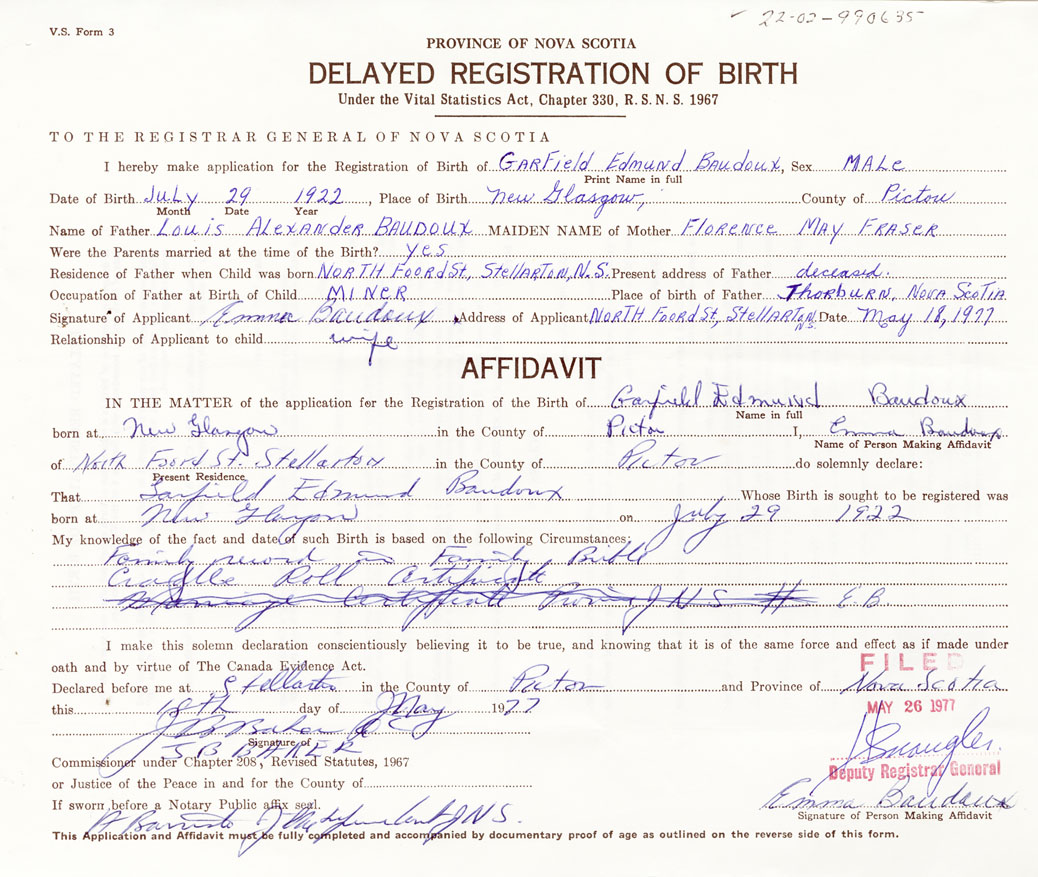 22-02-990635
V.S. Form 3
PROVINCE OF NOVA SCOTIA
DELAYED REGISTRATION OF BIRTH
Under the Vital Statistics Act, Chapter 330, R. S. N. S. 1967
TO THE REGISTRAR GENERAL OF NOVA SCOTIA
I hereby make application for the Registration of Birth of GARField Edmund BAUDOUX, Sex MALe
Print Name in full
Date of Birth July 29 1922, Place of Birth New Glasgow, County of Pictou
Month Date Year
Name of Father Louis ALEXANDER BAUDOUX MAIDEN NAME of Mother FLORENCE MAY FRASER
Were the Parents married at the time of the Birth? yes
Residence of Father when Child was born NORTH FOORD St, STELLARTON, N.S. Present address of Father deceased.
Occupation of Father at Birth of Child MINER Place of birth of Father THORBURN, NOVA SCOTIA
Signature of Applicant Emma Baudoux Address of Applicant NORTH FOORD St, STELLARTON N.S. Date May 18, 1977
Relationship of Applicant to child wife
AFFIDAVIT
IN THE MATTER of the application for the Registration of the Birth of Garfield Edmund Baudoux
Name in full
born at New Glasgow in the County of Pictou I, Emma Baudoux
Name of Person Making Affidavit
of North Foord St. Stellarton in the County of Pictou do solemnly declare:
Present Residence
That Garfield Edmund Baudoux Whose Birth is sought to be registered was
born at New Glasgow on July 29 1922
My knowledge of the fact and date of such Birth is based on the following Circumstances:
Family record in Family Bible
Cradle Roll Certificate
Marriage Certificate NS # E.B.
I make this solemn declaration conscientiously believing it to be true, and knowing that it is of the same force and effect as if made under
oath and by virtue of The Canada Evidence Act.
FILED
Declared before me at Stellarton in the County of Pictou and Province of Nova Scotia
this 18th day of May 1977
MAY 26 1977
J B Baker
Signature of
J B BAKER
Commissioner under Chapter 208, Revised Statutes, 1967
Deputy Registrar General
or Justice of the Peace in and for the County of
Emma Baudoux
If sworn before a Notary Public affix seal.
Signature of Person Making Affidavit
A Barrister NS.
This Application and Affidavit must be fully completed and accompanied by documentary proof of age as outlined on the reverse side of this form.